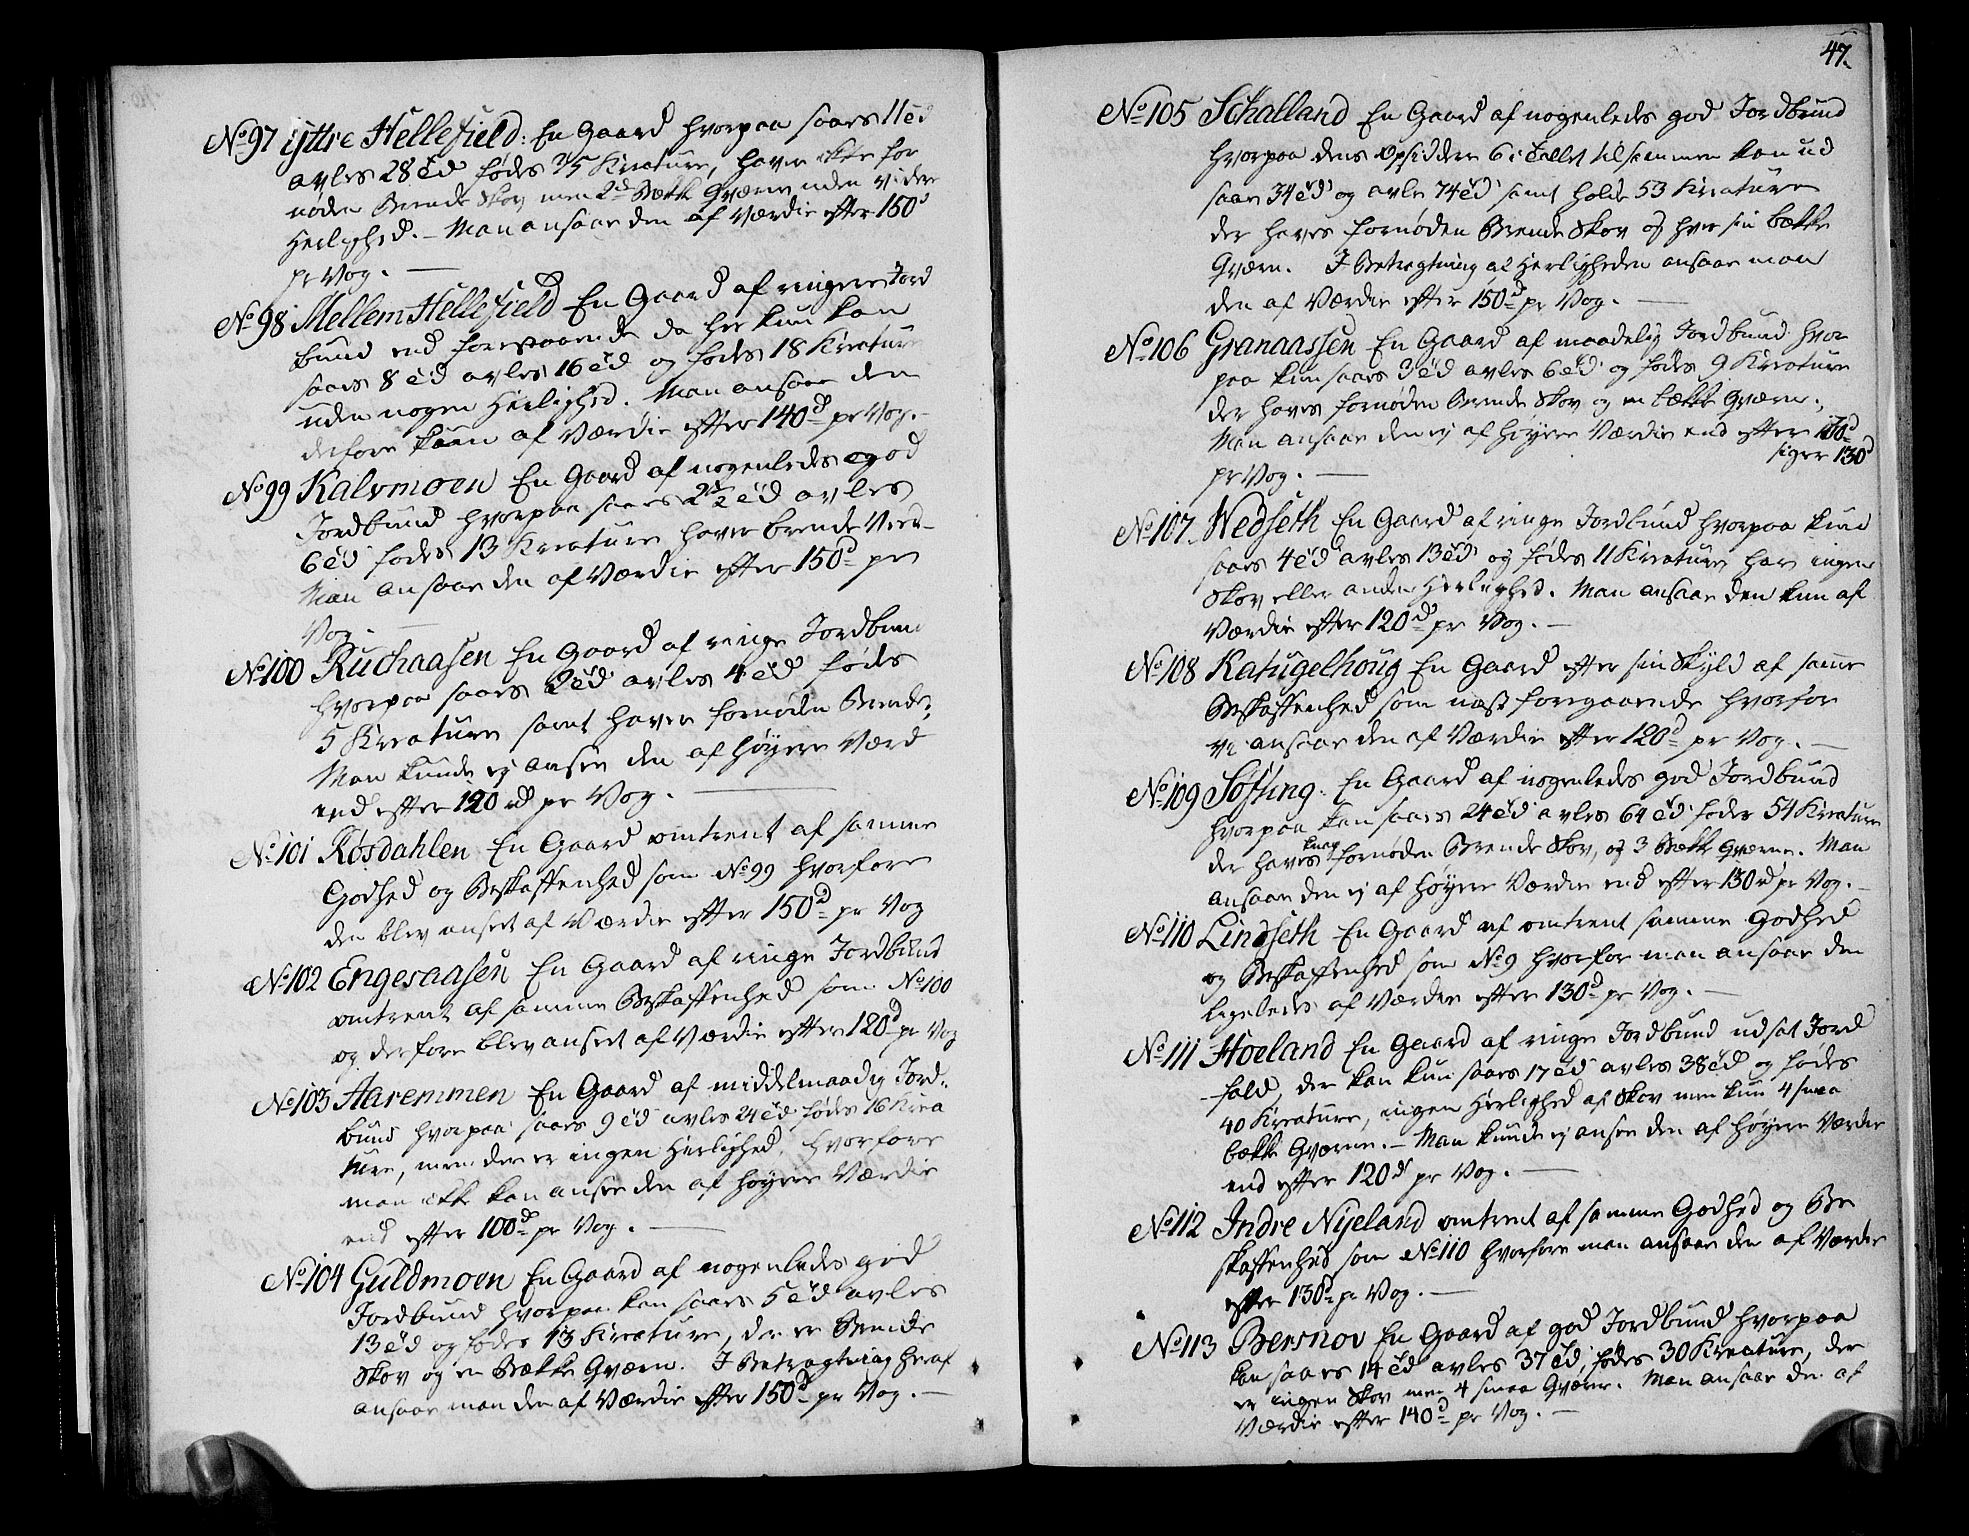 No 97 Yttre Hellefield: En Gaard hvorpaa saaes 11 Td
avles 28 Td fødes 35 Kreature, haver ikke for
nøden Brende Skov men 2de Bekke Qværne, uden videre
Herlighed. – Man ansaae den af Værdie efter 150 d
pr Vog. —
No 98 Mellem Hellefield En Gaard af ringere Jord
bund end forestaaende da her kun kan
saaes 8 Td avles 16 Td og fødes 18 Kreature
uden nogen Herlighed. Man ansaae den
derfore kuun af Værdie efter 140 d pr Vog. –
No 99 Kalvmoen En Gaard af nogenledes god
Jordbund hvorpaa saaes 2 1/2 Td avles
6 Td fødes 13 Kreature haver brende Veed –
Man ansaae den af Værdie efter 150 d pr
Vog. —
No 100 Ruchaasen En Gaard af ringe Jordbund
hvorpaa saaes 2 Td avles 4 Td føds
5 Kreature samt haver fornøden Brende:
Man kunde ej ansee den af høyere Værd
end efter 120 rd pr Vog. —
No 101 Røsdahlen En Gaard omtrent af samme
Godhed og Beskaffenhed som No 99 hvorfore
den blev anseet af Værdie efter 150 d pr Vog
No 102 Engesaasen En Gaard af ringe Jordbund
omtrent af samme Beskaffenhed som No 100
og derfore blev anseet af Værdie efter 120 d pr Vog
No 103 Aaremmen En Gaard af middelmaadig Jord-
bund hvorpaa saaes 9 Td avles 24 Td fødes 16 Krea
ture, men der er ingen Herlighed, hvorfore
man ikke kan ansee den af høyere Værdie
end efter 100 d pr Vog. —
No 104 Guldmoen En Gaard af nogenledes god
Jordbund hvorpaa kan saaes 5 Td avles
13 Td og fødes 13 Kreature, der er Brende
Skov og en Bekke Qværn. I Betragtning heraf
ansaae man den af Værdie efter 150 d pr Vog. –
47.
No 105 Schalland En Gaard af nogenleds god Jordbund
hvorpaa dens Opsiddere 6 i Tallet tilsammen kan ud
saae 34 Td og avle 74 Td samt holde 53 Kreature
der haves fornøden Brende Skov og hver sin bekke
Qværn. I Betragtning af Herligheden ansaae man
den af Værdie efter 150 d pr Vog. —
No 106 Granaassen En Gaard af maadelig Jordbund hvor
paa kun saaes 3 Td avles 6 Td og fødes 9 Kreature
der haves fornøden Brende Skov og en bekke Qværn.,
Man ansaae den ej af høyere Værdie end efter 100 d
siger 130 d
pr Vog. —
No 107. Wedseth En Gaard af ringe Jordbund hvorpaa kun
saaes 4 Td avles 13 Td og fødes 11 Kreature, har ingen
Skov eller anden Herlighed. Man ansaae den kun af
Værdie efter 120 d pr Vog. –
No 108 Katugelhoug En Gaard efter sin Skyld af samme
Beskaffenhed som næst foregaaende hvorfor
vi ansaae den af Værdie efter 120 d pr Vog. –
No 109 Søfting. En Gaard af nogenledes god Jordbund
hvorpaa kan saaes 24 Td avles 64 Td føder 54 Kreature
der haves knap fornøden Brende Skov, og 3 Bekke Qværne. Man
ansaae den ej af høyere Værdie end efter 130 rd pr Vog. –
No 110 Lindseth En Gaard af omtrent samme Godhed
og Beskaffenhed som No 9 hvorfor man ansaae den
ligeledes af Værdie efter 130 d pr Vog. –
No 111 Hoeland En Gaard af ringe Jordbund udsat Jord
fald, der kan kun saaes 17 Td avles 38 Td og fødes
40 Kreature, ingen Herlighed af Skov men kun 4 smaa
bekke Qværne. – Man kunde ej ansee den af høyere Værdie
end efter 120 d pr Vog. —
No 112 Indre Nyeland omtrent af samme Godhed og Be
skaffenhed som No 110 hvorfore man ansaae den af Værdie
efter 130 d pr Vog. –
No 113 Bersnov En Gaard af god Jordbund hvorpaa
kan saaes 14 Td avles 37 Td, fødes 30 Kreature, der
er ingen Skov men 4 smaa Qværne. Man ansaae den af
Værdie efter 140 d pr Vog. –